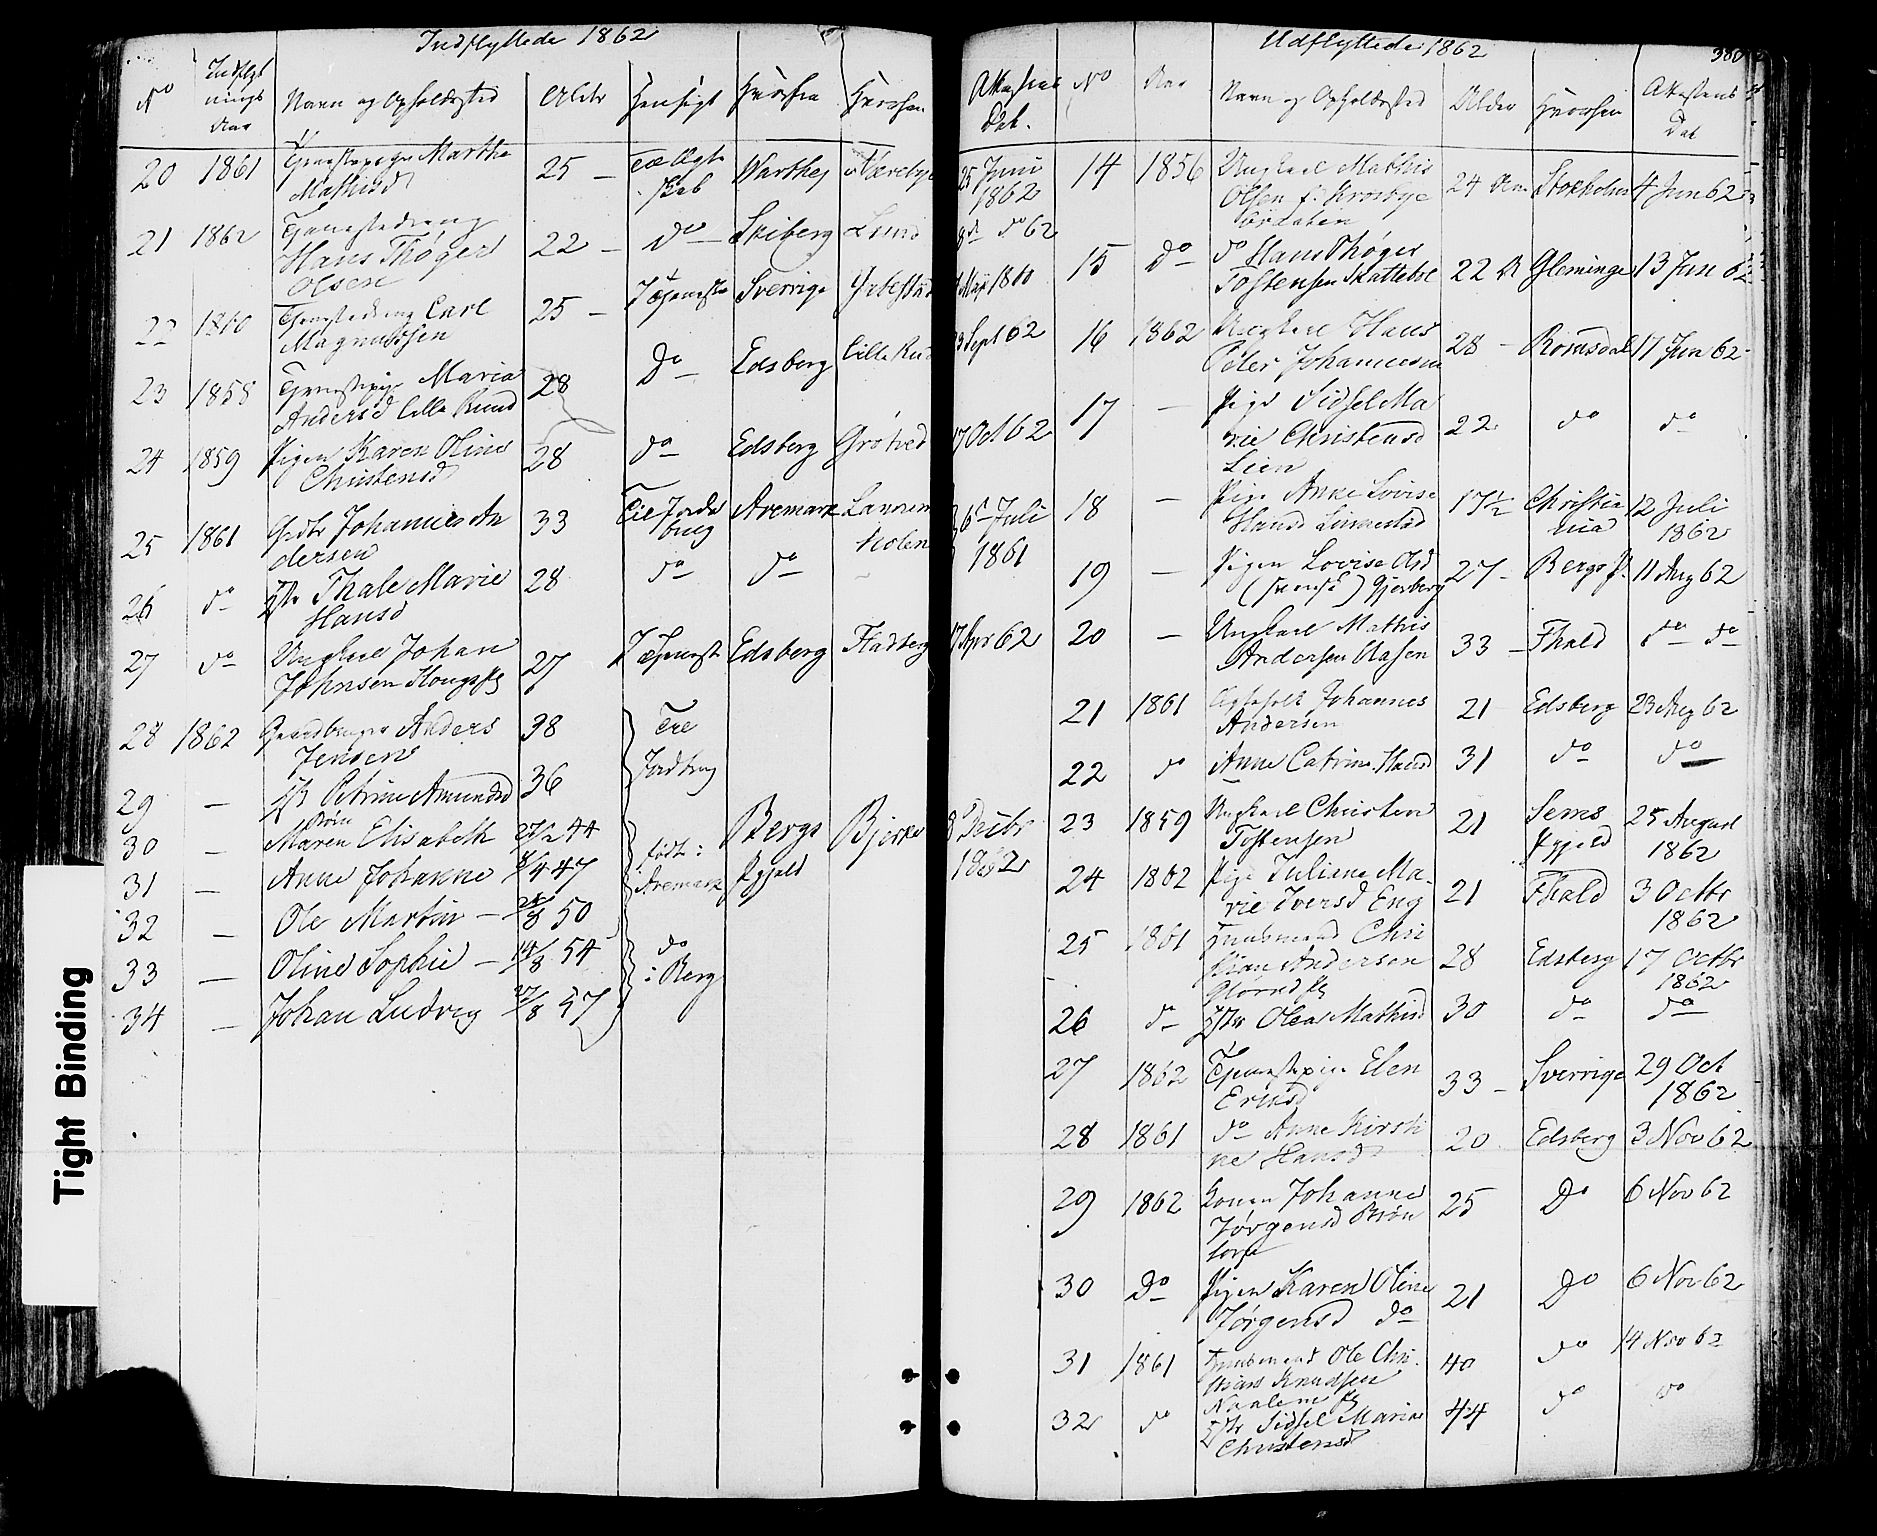 Indflyttede 1862
No
Indflyt
nings
Aar
Navn og Opholdssted
Alder
Hensigt
Hvorfra
Hvorhen
Attestens
Dat.
20 1861 Tjenestepige Marthe 25 –
Mathisd
skab
21 1862 Tjenestedreng 22 – do Skiberg Lund
Hans Thøger
Olsen
8de do 62
22 1860 Tjenestedreng Carl 25 – I Tjeneste Sverrige
Magnussen
23 1858 Tjenestepige Maria 28 Do Edsberg Lille Rud
Andersd Lille Ruud
Sept 62
24 1859 Pigen Karen Oline 28 do Edsberg Grøtved
Christensd
17 Oct 62
25 1861 Grdbr Johannes An 33 Til Jordbrug Aremark
dersen
Juli
1861
26 do Thale Marie 28 do do
Hansd
27 do Ungkarl Johan 27 I Tjeneste Edsberg
Johnsen
17 Apr 62
28 1862 Gaardbruger Anders 38 Til
Jensen
Jordbrug
29 – Petrine Amundsd 36
Børn
30 – Maren Elisabeth 27/2 44 Bergs Bjerke
Præjeld
1862
31 – Anne Johanne 8/4 47 født i
Aremark
32 – Ole Martin – 26/8 50
33 – Oline Sophie – 14/8 54 do
i Berg
34 – Johan Ludvig 27/8 57
Udflyttede 1862
380
No
Aar
Navn og Opholdssted
Alder
Hvorhen
Attestens
Dat
14 1856 Ungkarl Mathis 24 Aar Stokholm 4 Jun 62
Olsen f. Krosbye
15 do do Hans Thøger 22 A Gleminge 13 Jun 62
Tostensen Skattebøl
16 1862 Ungkarl Hans 28 – Romsdal 17 Jun 62
Peter Johannesen
17 – Pige Sidsel Ma 22 do do
rie Christensd
Lien
18 – Pige Anne Lovise 17½ Christia 12 Juli
Hansd Linnestad nia 1862
19 – Pigen Lovise Olsd 27 – Bergs P. 11 Aug 62
(svensk) Gjerberg
20 – Ungkarl Mathis 33 – Fhald do do
Andersen
21 1861 Johannes 21 Edsberg 23 Aug 62
Andersen
22 do Anne Catrine Hansd 31 do do
23 1859 Ungkarl Christian 21 Sems 25 August
Tostensen Pgjeld 1862
24 1862 Pige Juliane Ma- 21 Fhald 3 Octbr
rie Iversd Eng 1862
25 1861 Huusmand Chri 28 Edsberg 17 Octbr
stian Andersen 1862
26 do Olea Mathisd 30 do do
27 1862 Tjenestepige Elen 33 – Sverrige 29 Oct
Eriksd 1862
28 1861 do Anne Kirsti 20 Edsberg 3 Nov 62
ne Hansd
29 1862 Konen Johanne 25 Do 6 Nov 62
Jørgensd Brøn
torp
30 Do Pigen Karen Oline 21 Do 6 Nov 62
Jørgensd do
31 1861 Huusmand Ole Chri- 40 do 14 Nov 62
stian Knudsen
32 do Sidsel Maria 44 do do
Christensd
Tight Binding